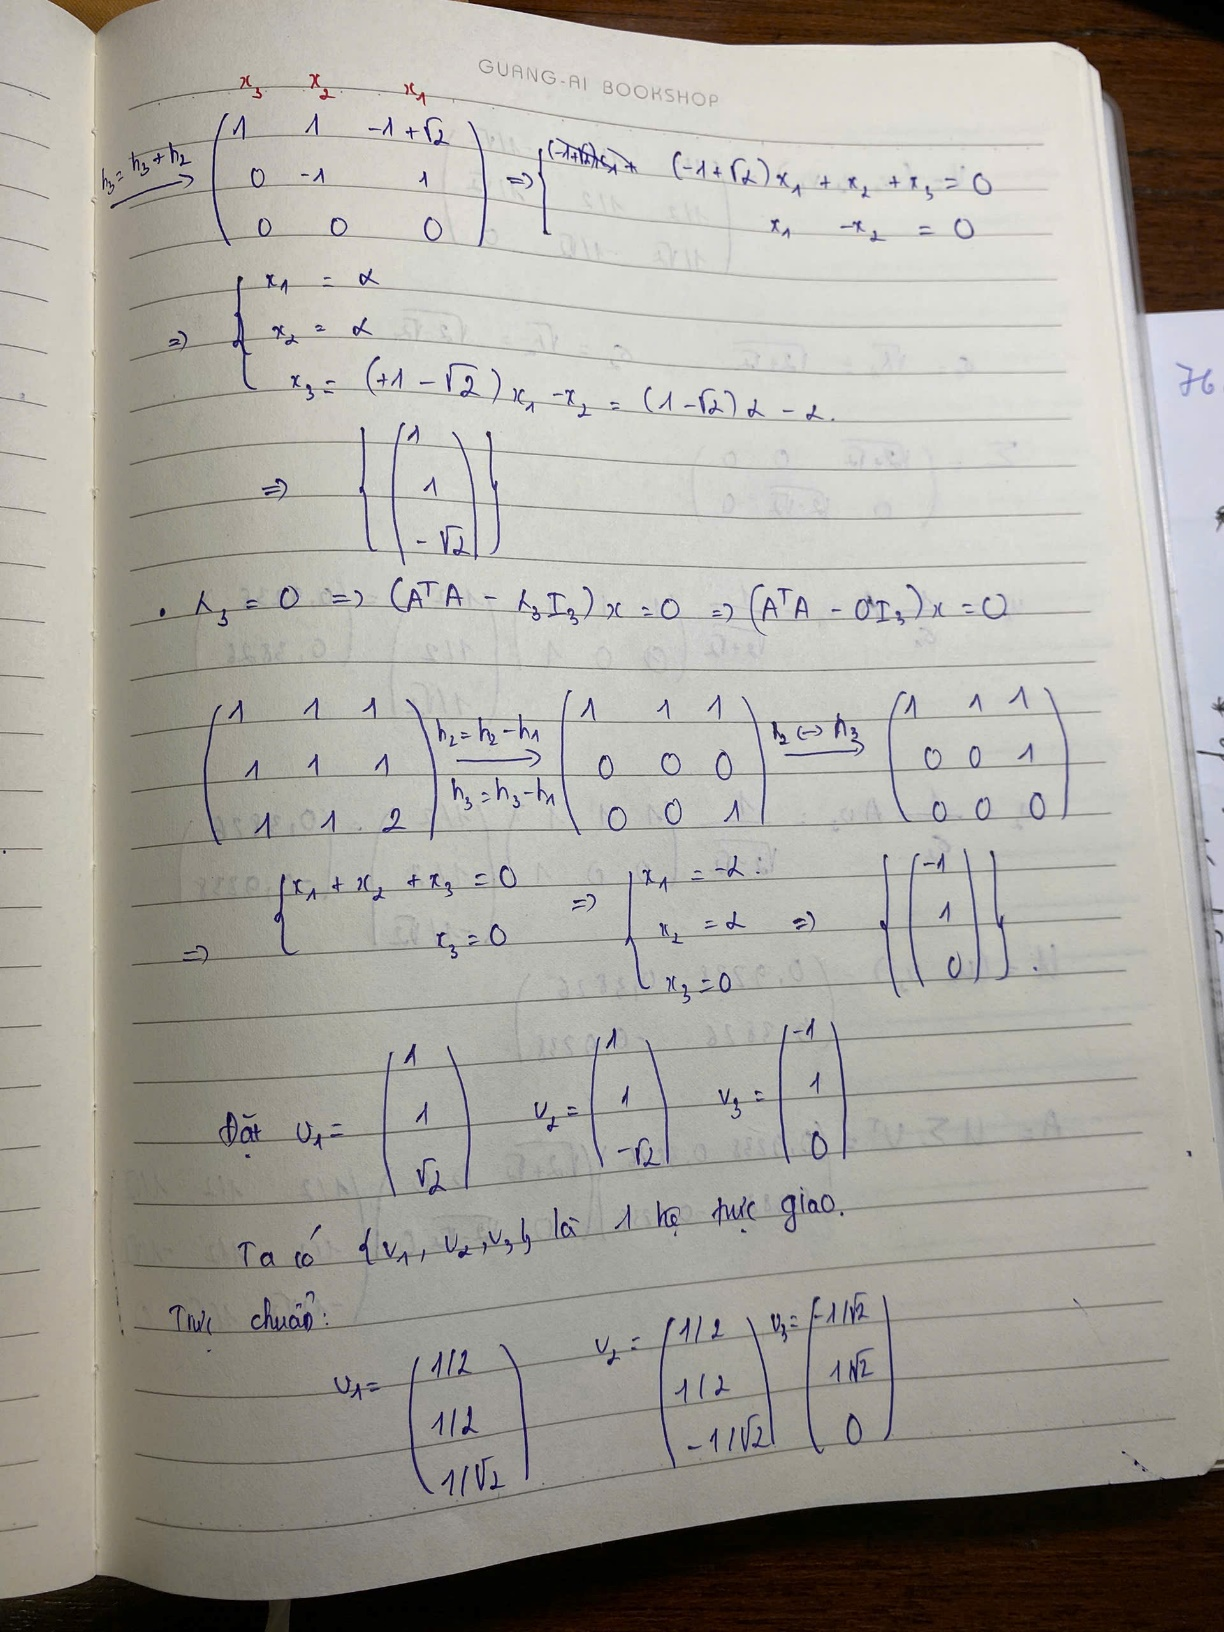 GUANG-AI BOOKSHOP
x₃ x₂ x₁
h₃ = h₃ + h₂ → (1 1 -1+√2
0 -1 1
0 0 0) ⇒ { (-1+√2)x₁ + x₂ + x₃ = 0
x₁ - x₂ = 0
⇒ { x₁ = α
x₂ = α
x₃ = (+1 - √2) x₁ - x₂ = (1-√2) α - α.
⇒ { (1
1
-√2) }
. λ₃ = 0 ⇒ (AᵀA - λ₃I₃) x = 0 ⇒ (AᵀA - 0*I₃) x = 0
(1 1 1
1 1 1
1 1 2) h₂ = h₂ - h₁ → h₃ = h₃ - h₁ (1 1 1
0 0 0
0 0 1) h₂ ↔ h₃ → (1 1 1
0 0 1
0 0 0)
⇒ { x₁ + x₂ + x₃ = 0
x₃ = 0 ⇒ { x₁ = -α
x₂ = α
x₃ = 0 ⇒ { (-1
1
0) }.
Đặt v₁ = (1
1
√2) v₂ = (1
1
-√2) v₃ = (-1
1
0)
Ta có {v₁, v₂, v₃} là 1 hệ trực giao.
Trực chuẩn:
v₁ = (1/2
1/2
1/√2) v₂ = (1/2
1/2
-1/√2) v₃ = (-1/√2
1/√2
0)